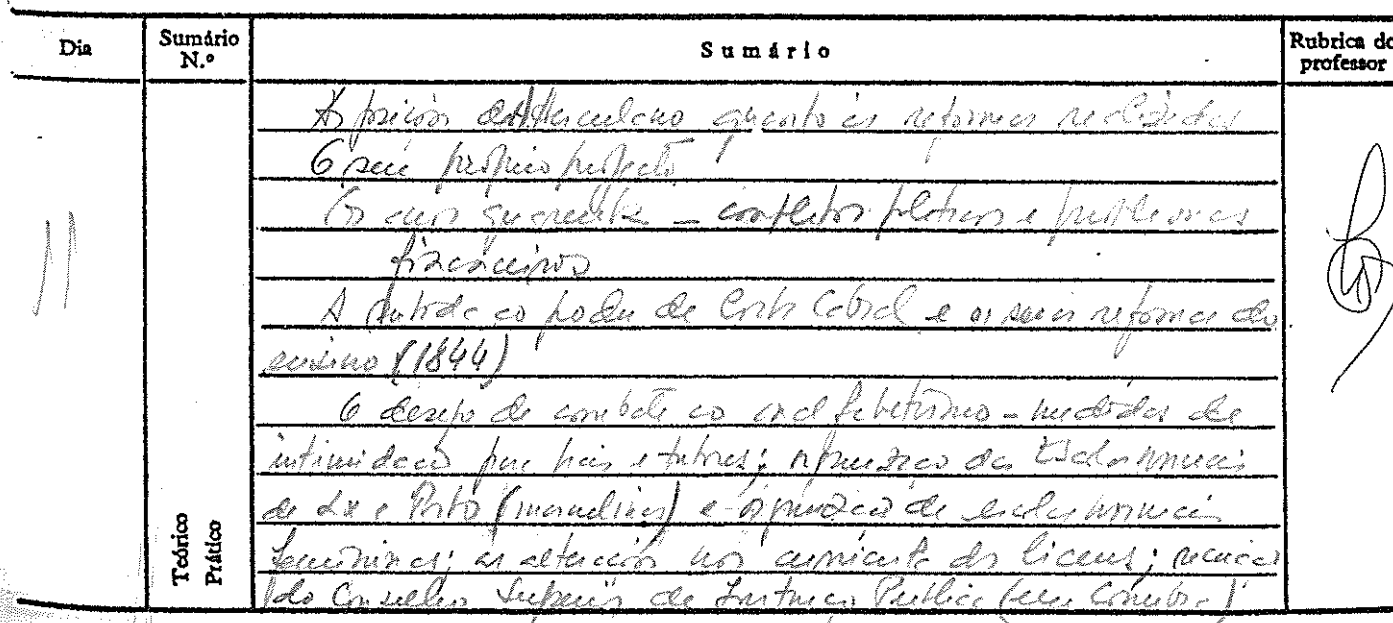 Dia
Sumário N.º
Sumário
Rubrica do professor
As posições de Herculano quanto às reformas realizadas
O seu próprio projecto
Os anos quarenta – conflitos políticos e problemas
financeiros
11
A subida ao poder de Costa Cabral e as suas reformas do
ensino (1844)
O desejo de combate ao analfabetismo – medidas de
intimidação para pais e tutores; organização das Escolas normais
de Lx e Porto (masculinas) e organização de escolas normais
femininas; as alterações nos curricula dos liceus; criação
do Conselho Superior de Instrução Pública (em Coimbra)
Teórico
Prático